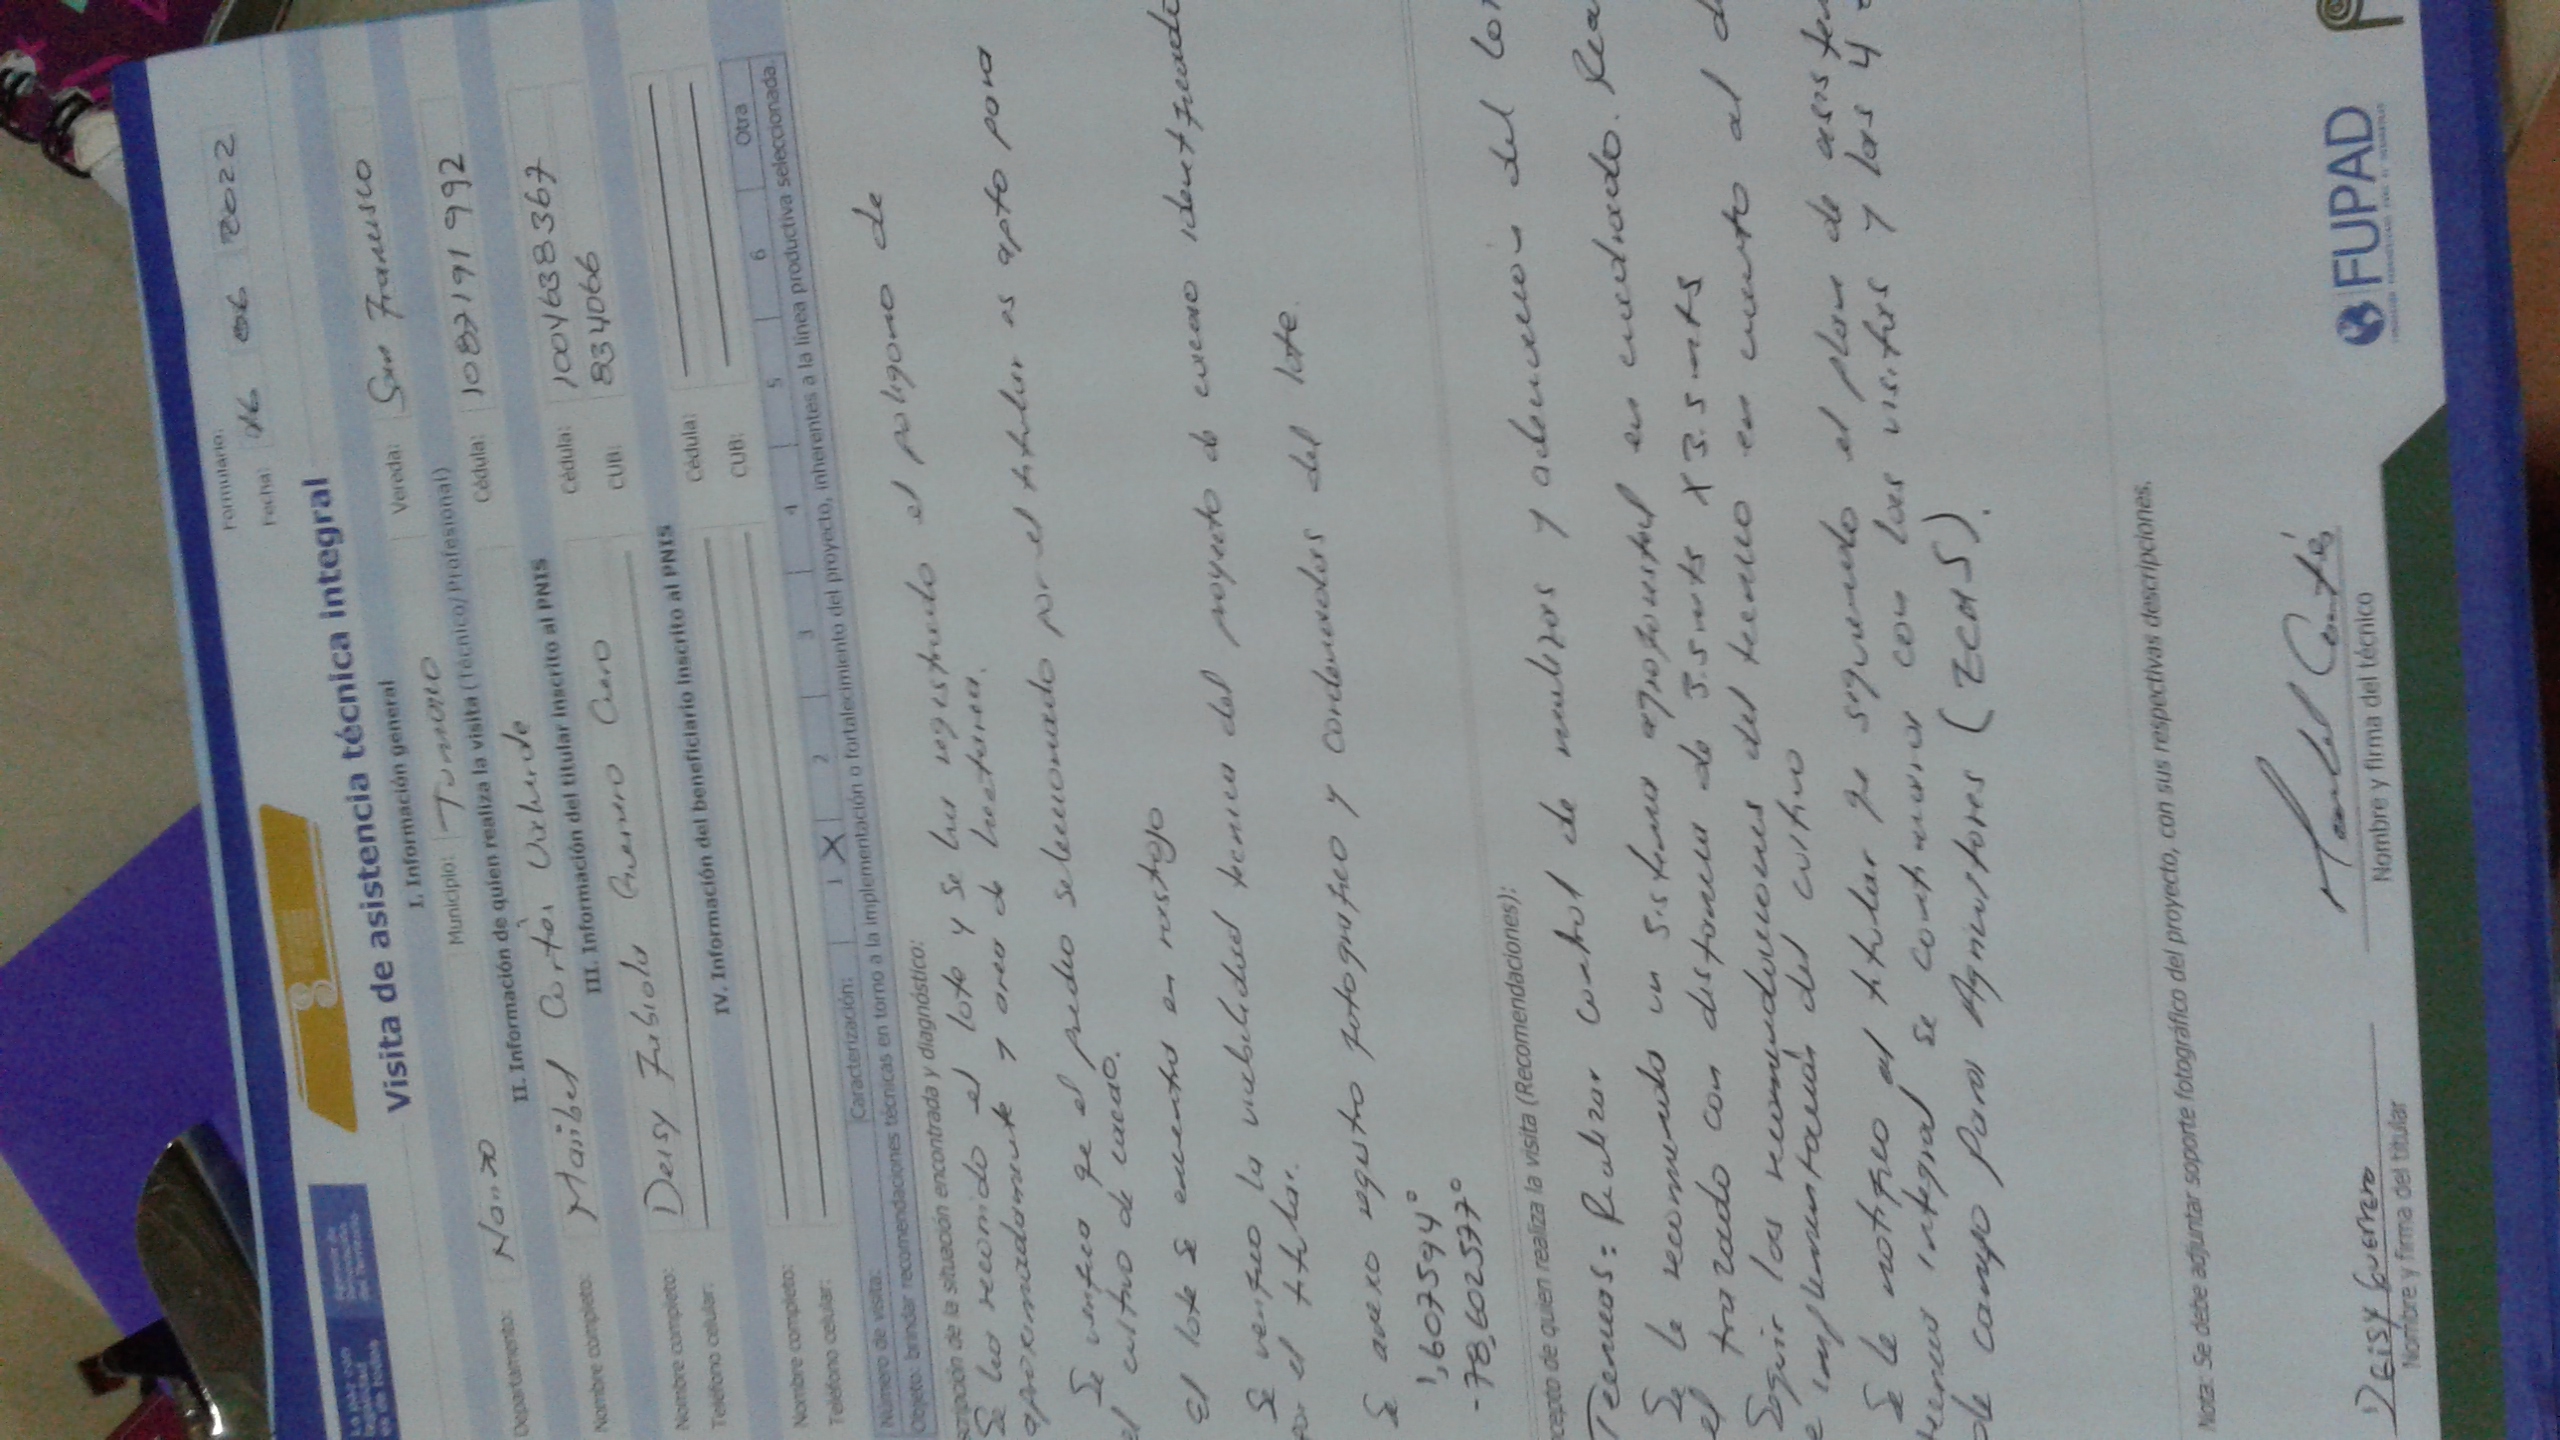 Formulario:
Fecha: 16 06 2022
Visita de asistencia técnica integral
I. Información general
Departamento: Municipio: Tumaco Vereda: San Francisco
II. Información de quien realiza la visita (Técnico/Profesional)
Nombre completo: Maribel Cortés Valverde Cédula: 1087191992
III. Información del titular inscrito al PNIS
Nombre completo: Deisy Fabiola Guerrero Caro Cédula: 1004638367
Teléfono celular: CUB: 834066
IV. Información del beneficiario inscrito al PNIS
Nombre completo: Cédula:
Teléfono celular: CUB:
Número de visita: Caracterización: 1 X 2 3 4 5 6 Otra
Objeto: brindar recomendaciones técnicas en torno a la implementación o fortalecimiento del proyecto, inherentes a la línea productiva seleccionada.
scripción de la situación encontrada y diagnóstico:
Se ha recorrido el lote y se ha registrado el poligono de
aproximadamente y area de hectarea.
Se verifico qe el predio seleccionado por el titular es apto para
el cultivo de cacao.
El lote se encuentra en rastrojo
Se verifico la viabilidad tecnica del proyecto de cacao identificado
por el titular.
Se anexo registro fotografico y cordenadas del lote.
1,6075594°
-78,602577°
ncepto de quien realiza la visita (Recomendaciones):
Tecnicas: Realizar control de malezas y adecuación del lo
Se le recomienda un sistema agroforestal en cuadrado. Rea
el trazado con distancia de 3.5 mts X 3.5 mts
Seguir las recomendaciones del tecnico en cuanto al
e implementación del cultivo
Se le notifico al titular qe siguiendo el plan de
tecnica integral se continuara con las visitas y las 4
de campo para Agricultores (ECAS).
Nota: Se debe adjuntar soporte fotográfico del proyecto, con sus respectivas descripciones.
Deisy Guerrero Maribel Cortés
Nombre y firma del titular Nombre y firma del técnico
FUPAD